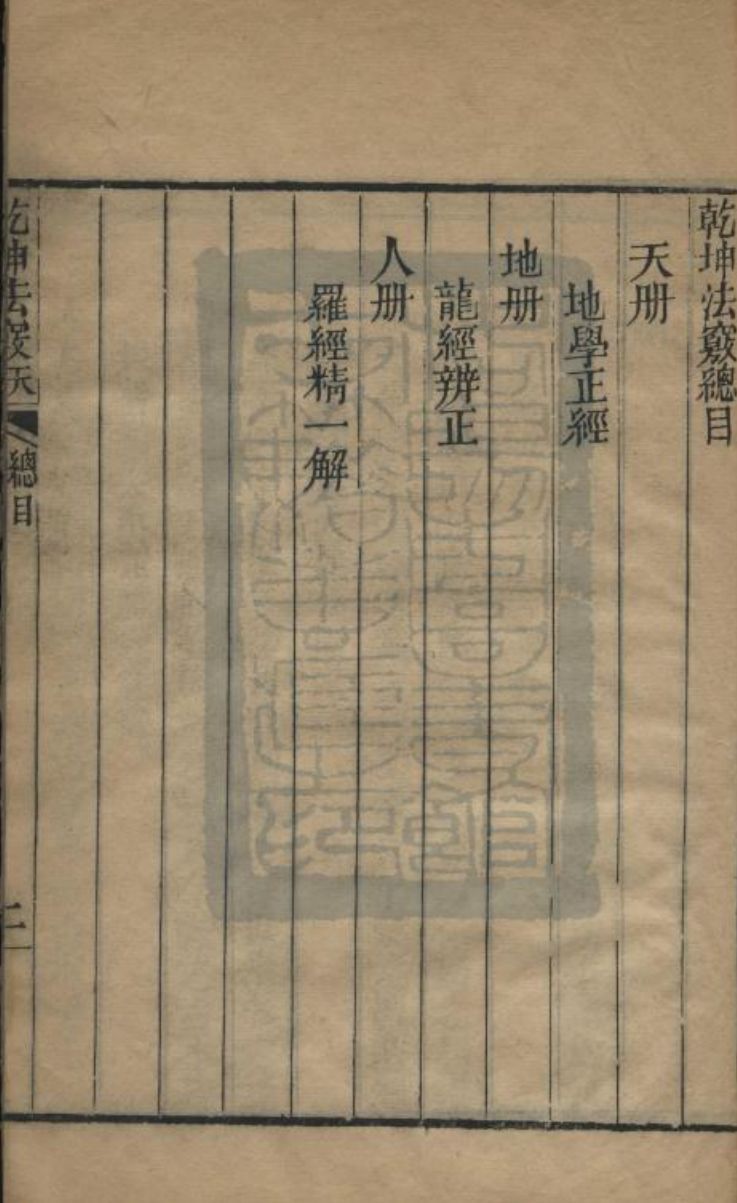 乾坤法竅總目
天册
地學正經
地册
龍經辨正
人册
羅經精一解
乾坤法竅天
總目